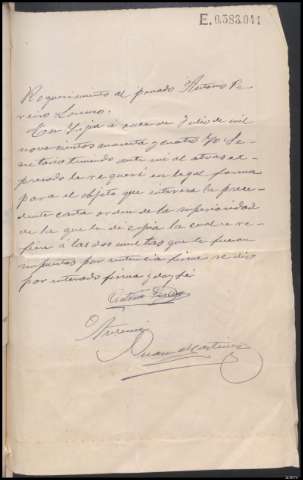 E.0383.041
Requerimiento al penado Antonio Pe-
reiro Lorenzo.
En        a once de Julio de mil
novecientos cuarenta y cuatro Yo Se-
cretario teniendo ante mi al atras ex-
presado le requeri en legal forma
para el objeto que interesa la prece-
dente carta orden de la superioridad
de la que le di copia la cual se re-
fiere a las dos multas que le fueron
impuestas por sentencia firme se dio
por enterado firma y doy fe
Antonio Pereiro